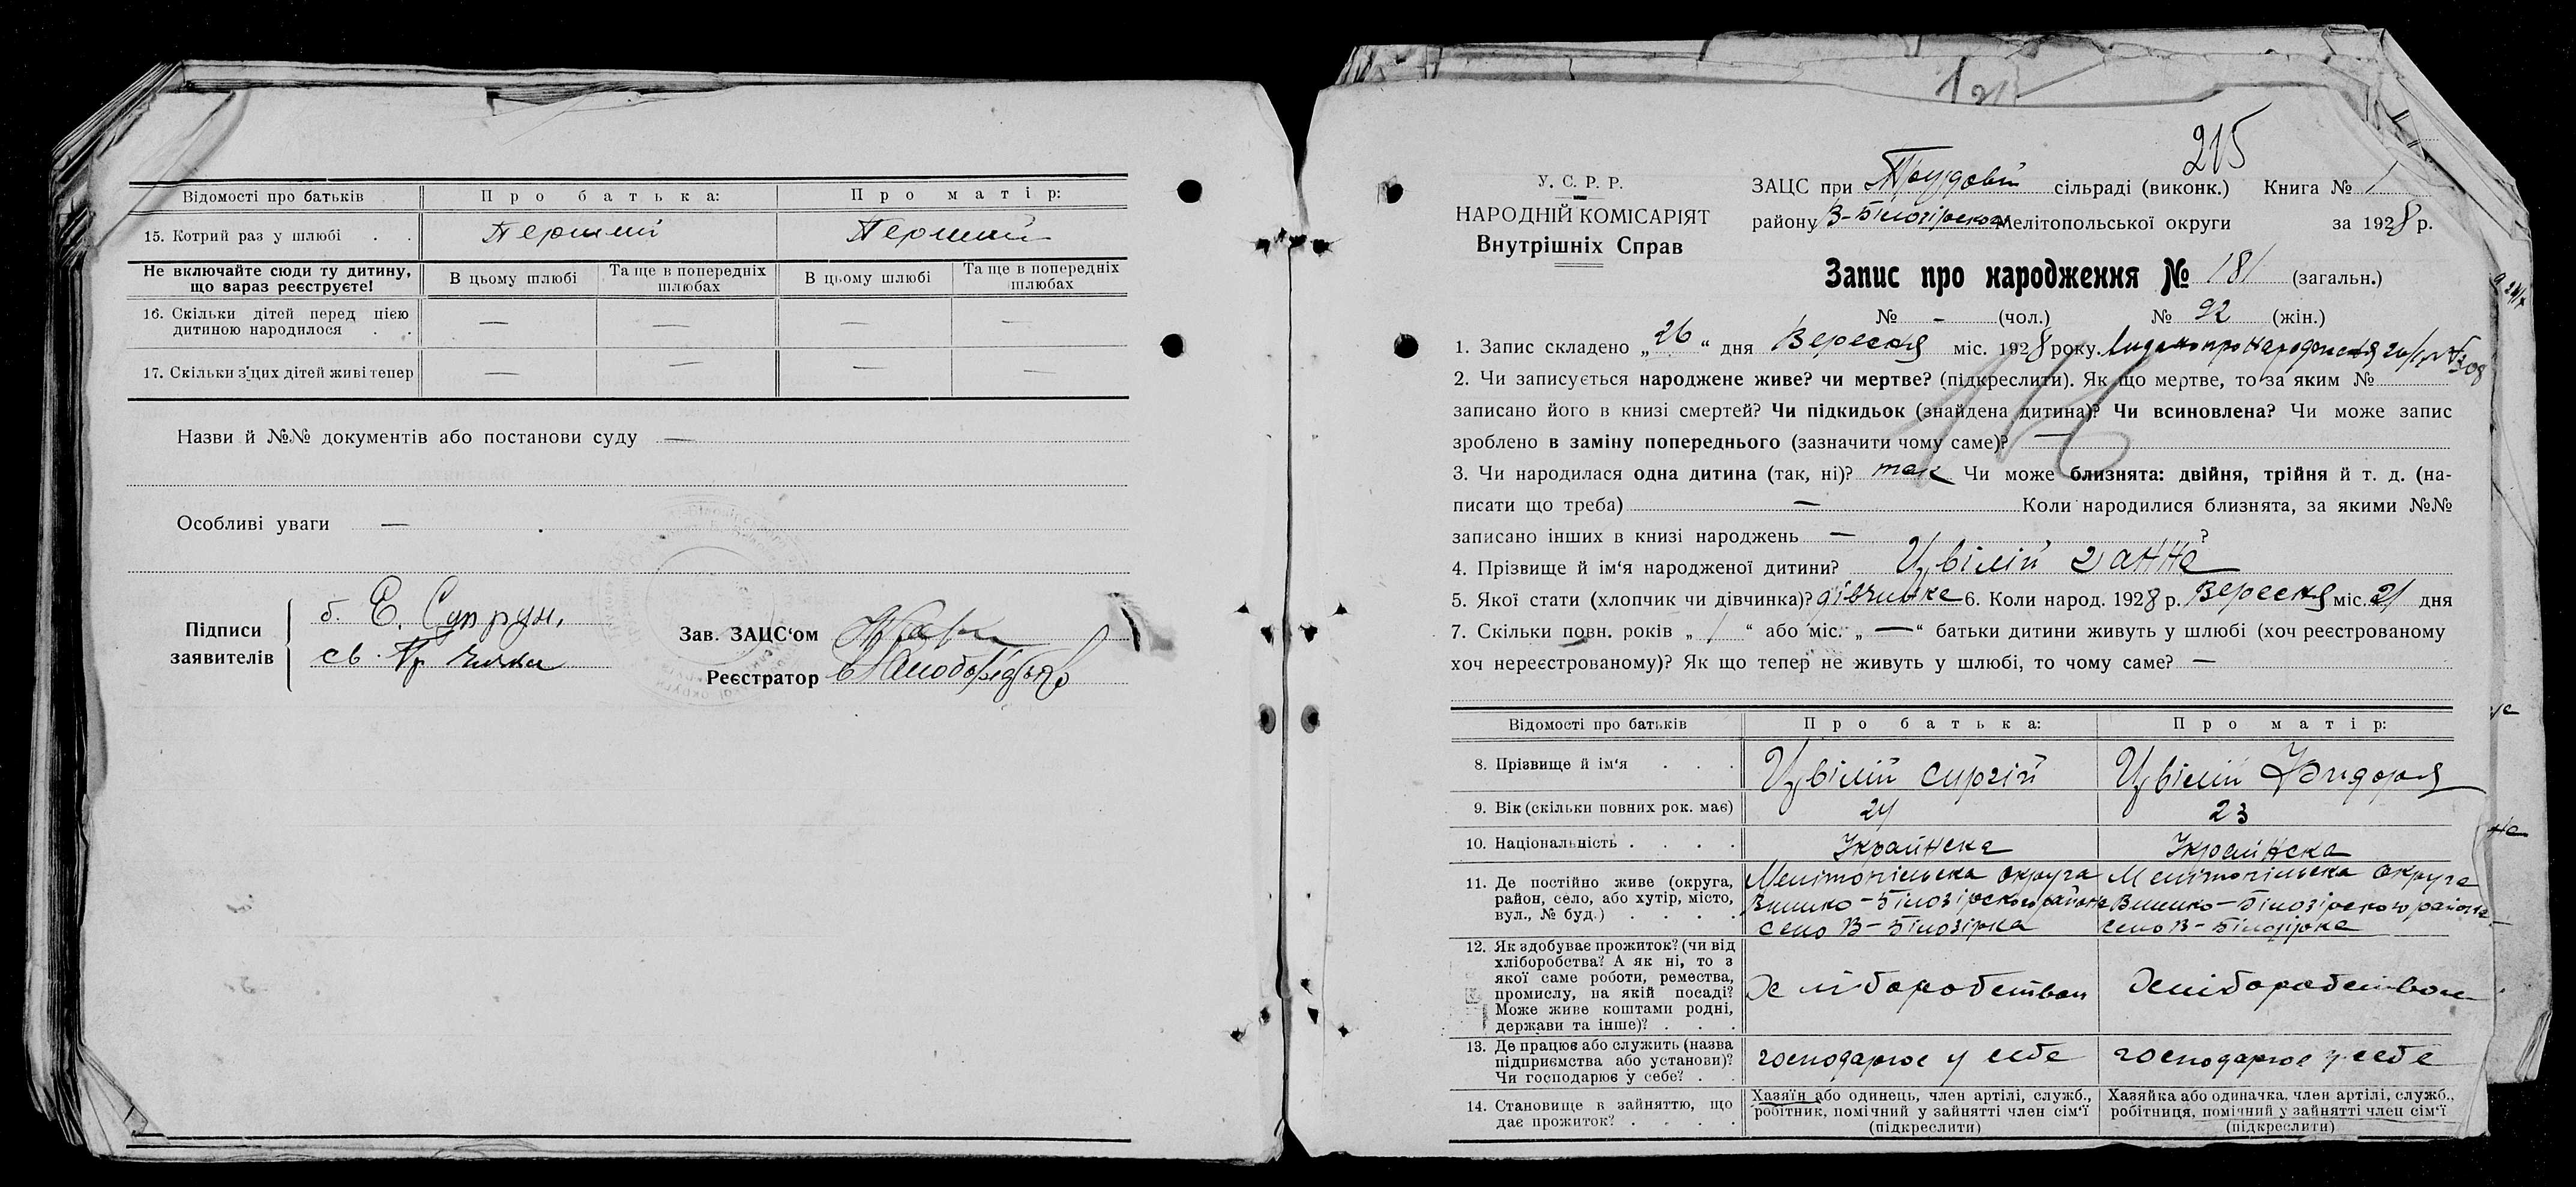 Відомості про батьків Про батька: Про матір:
15. Котрий раз у шлюбі . . Перший Перший
Не включайте сюди ту дитину, що зараз реєструєте! В цьому шлюбі Та ще в попередніх шлюбах В цьому шлюбі Та ще в попередніх шлюбах
16. Скільки дітей перед цією
дитиною народилося . . — — — —
17. Скільки з цих дітей живі тепер — — — —
Назви й №№ документів або постанови суду —
Особливі уваги —
Підписи заявителів
б. Е. Супрун,
св.
Зав. ЗАЦС'ом
Реєстратор
215
У. С. Р. Р.
НАРОДНІЙ КОМІСАРІЯТ
Внутрішніх Справ
ЗАЦС при Трудовій сільраді (виконк.) Книга № 1
району В-Білозірском Мелітопольської округи за 1928 р.
Запис про народження № 181 (загальн.)
№ - (чол.) № 92 (жін.)
1. Запис складено „26“ дня Вересня міс. 1928 року.
2. Чи записується народжене живе? чи мертве? (підкреслити). Як що мертве, то за яким №
записано його в книзі смертей? Чи підкидьок (знайдена дитина)? Чи всиновлена? Чи може запис
зроблено в заміну попереднього (зазначити чому саме)? —
3. Чи народилася одна дитина (так, ні)? так Чи може близнята: двійня, трійня й т. д. (на-
писати що треба) — Коли народилися близнята, за якими №№
записано інших в книзі народжень — ?
4. Прізвище й ім'я народженої дитини? Цвілій Ганна
5. Якої стати (хлопчик чи дівчинка)? дівчинка 6. Коли народ. 1928 р. Вересня міс. 21 дня
7. Скільки повн. років „ 1 “ або міс. „ — “ батьки дитини живуть у шлюбі (хоч реєстрованому
хоч нереєстрованому)? Як що тепер не живуть у шлюбі, то чому саме? —
Відомості про батьків Про батька: Про матір:
8. Прізвище й ім'я . . . Цвілій Сиргій Цвілій
9. Вік (скільки повних рок. має) 24 23
10. Національність . . . . Українска Українска
11. Де постійно живе (округа,
район, село, або хутір, місто,
вул., № буд.) . . . .
Мелітопільска округа Мелітопільска округа
Вилико-Білозірского района Вилико-Білозірского района
село В-Білозірка село В-Білозірка
12. Як здобуває прожиток? (чи від
хліборобства? А як ні, то з
якої саме роботи, ремества,
промислу, на якій посаді?
Може живе коштами родні,
держави та інше)? . . .
Хліборобством Хліборобством
13. Де працює або служить (назва
підприємства або установи)?
Чи господарює у себе? . .
господарює у себе господарює у себе
14. Становище в зайняттю, що
дає прожиток? . . . .
Хазяїн або одинець, член артілі, служб.,
робітник, помічний у зайнятті член сім'ї
(підкреслити)
Хазяйка або одиначка, член артілі, служб.,
робітниця, помічний у зайнятті член сім'ї
(підкреслити)